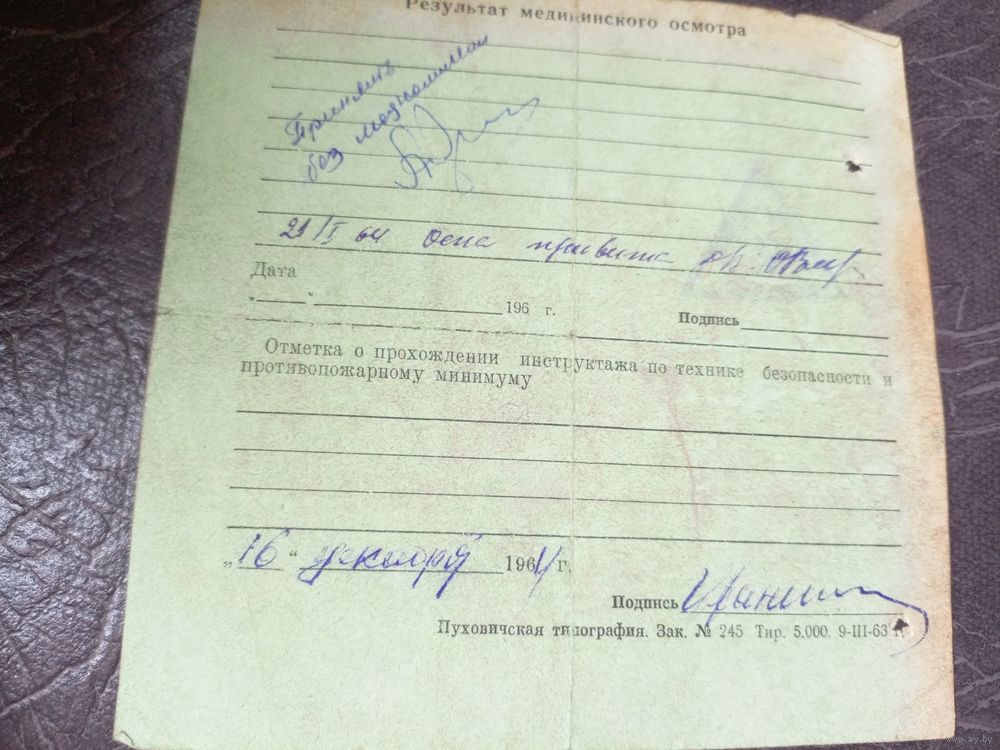 Результат медицинского осмотра
Принять
без медкомиссии
21/I 64 Оспа привита
Дата
"____"____________196 г.
Подпись
Отметка о прохождении инструктажа по технике безопасности и
противопожарному минимуму
„16“ декабря 1964 г.
Подпись
Пуховичская типография. Зак. № 245 Тир. 5.000. 9-III-63 г.
www.ay.by